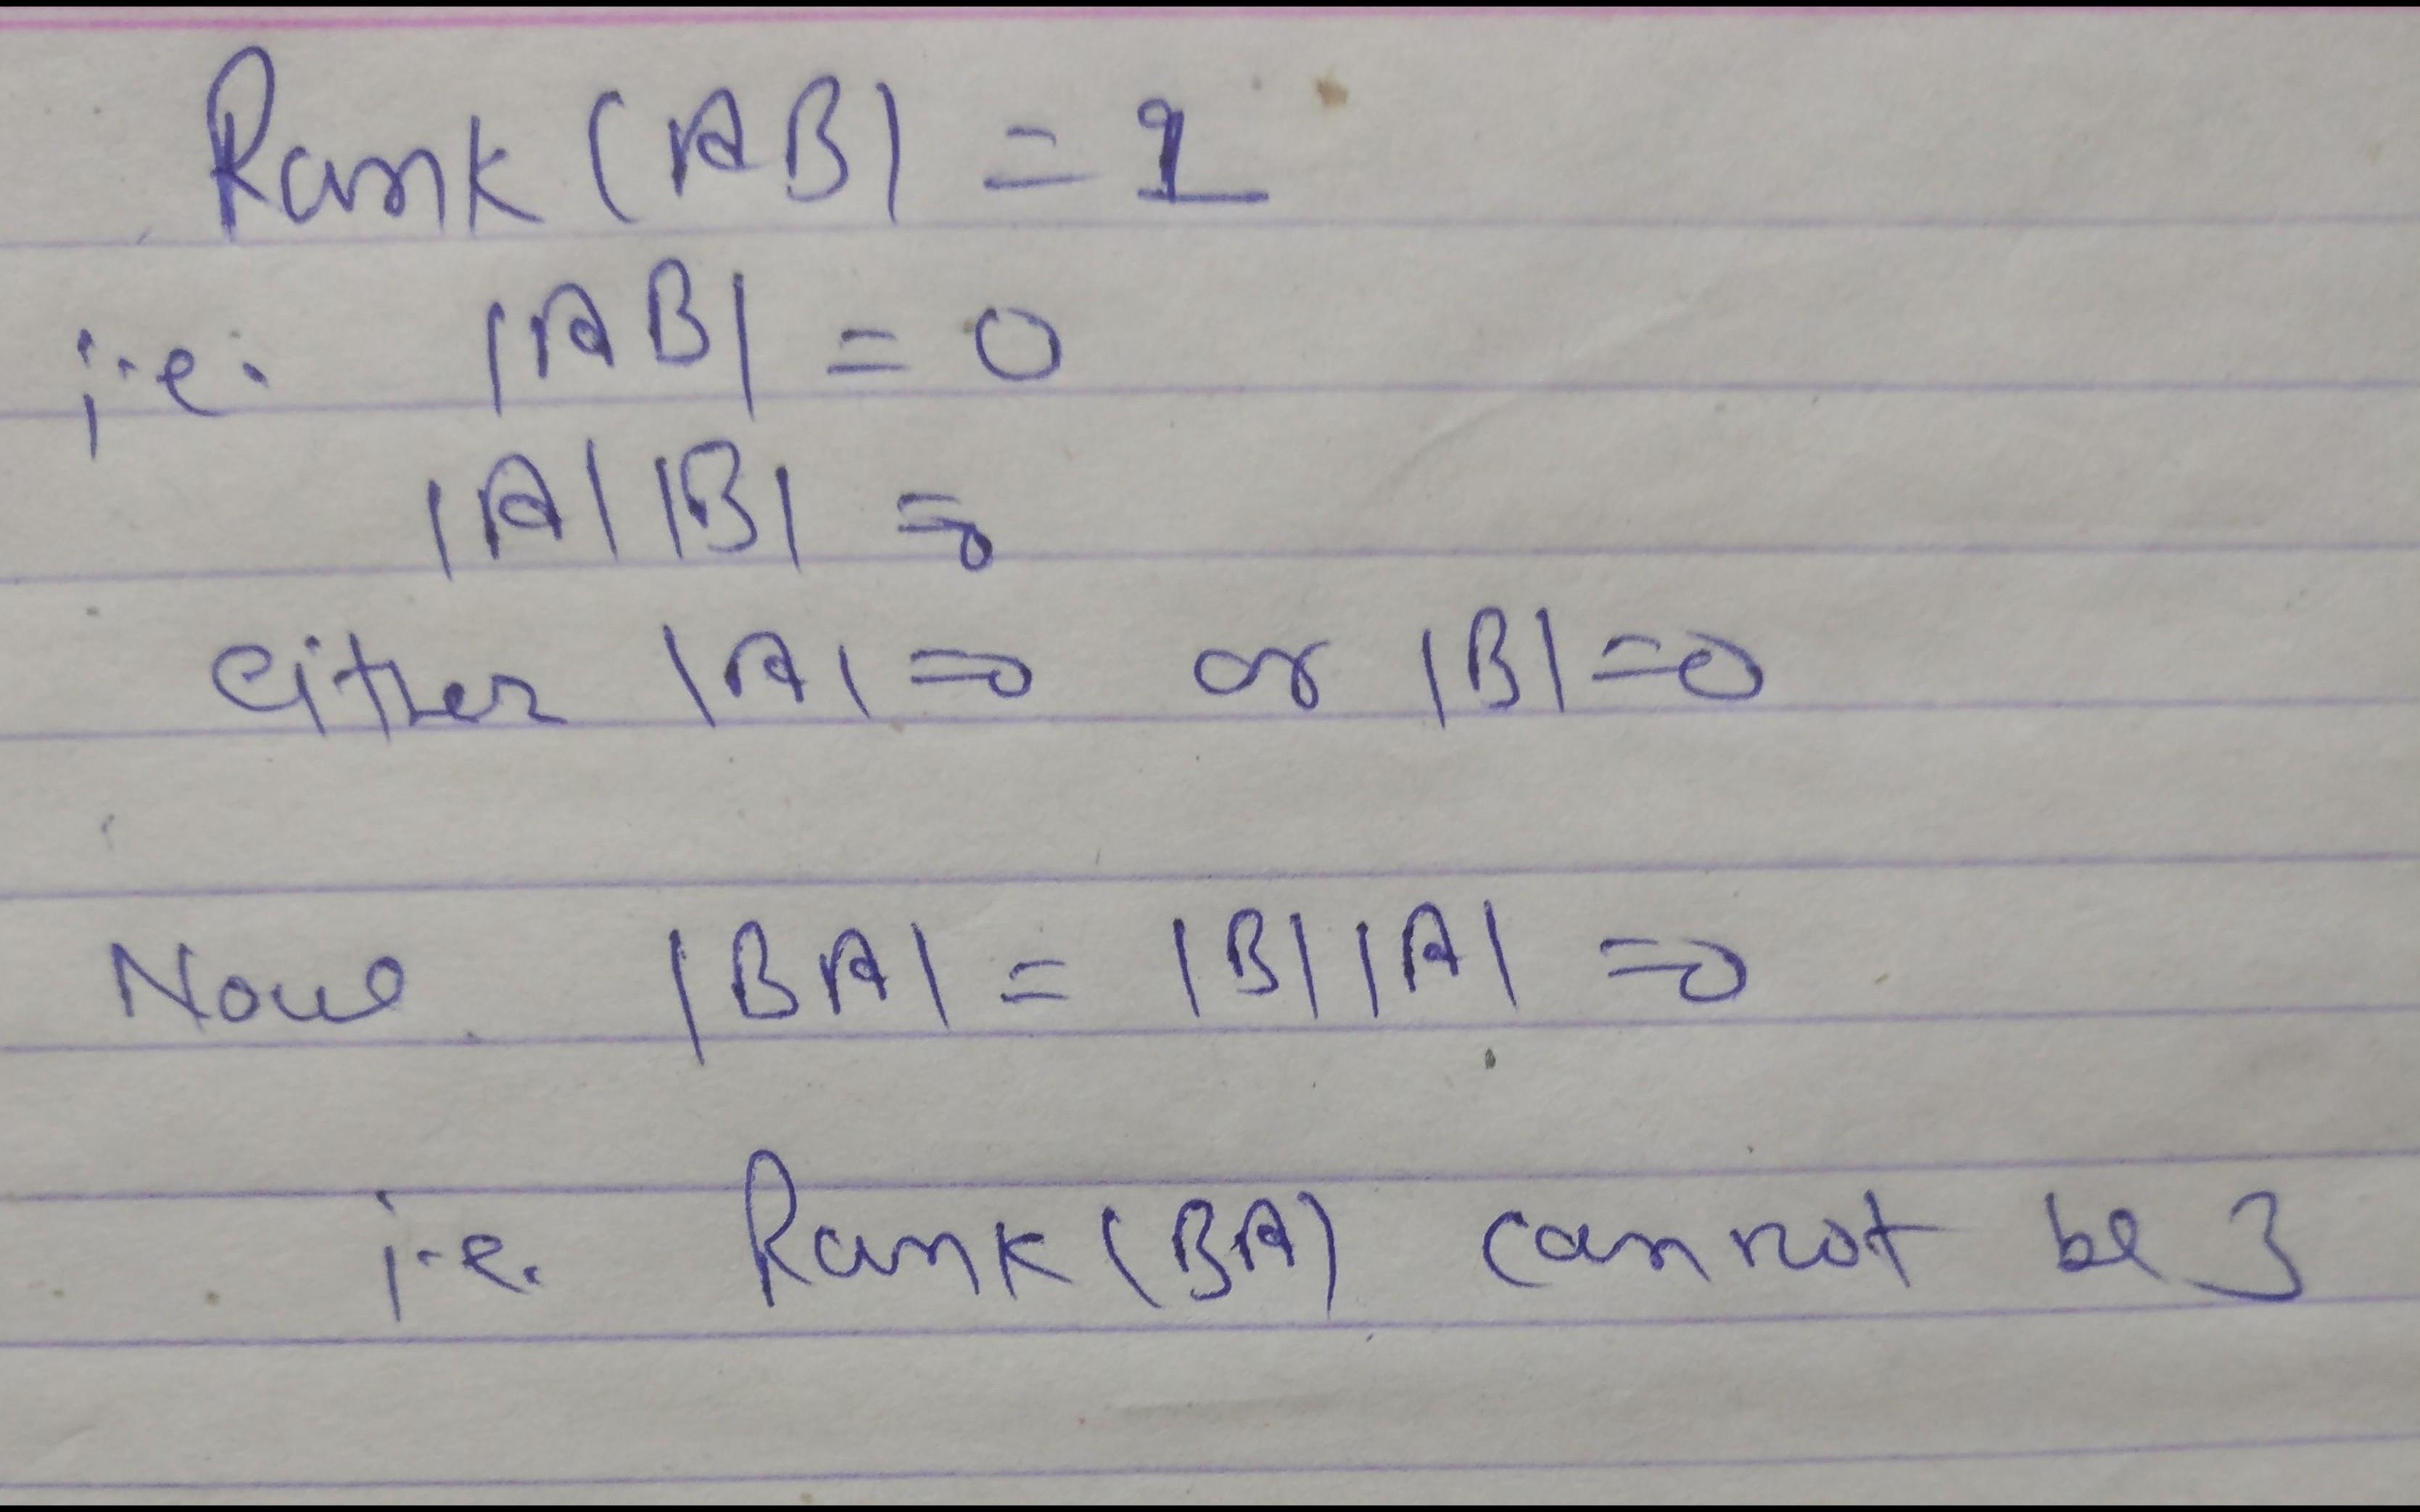 Rank (AB) = 1
i.e. |AB| = 0
|A| |B| = 0
either |A| = 0 or |B| = 0
Now |BA| = |B| |A| = 0
i.e. Rank (BA) cannot be 3